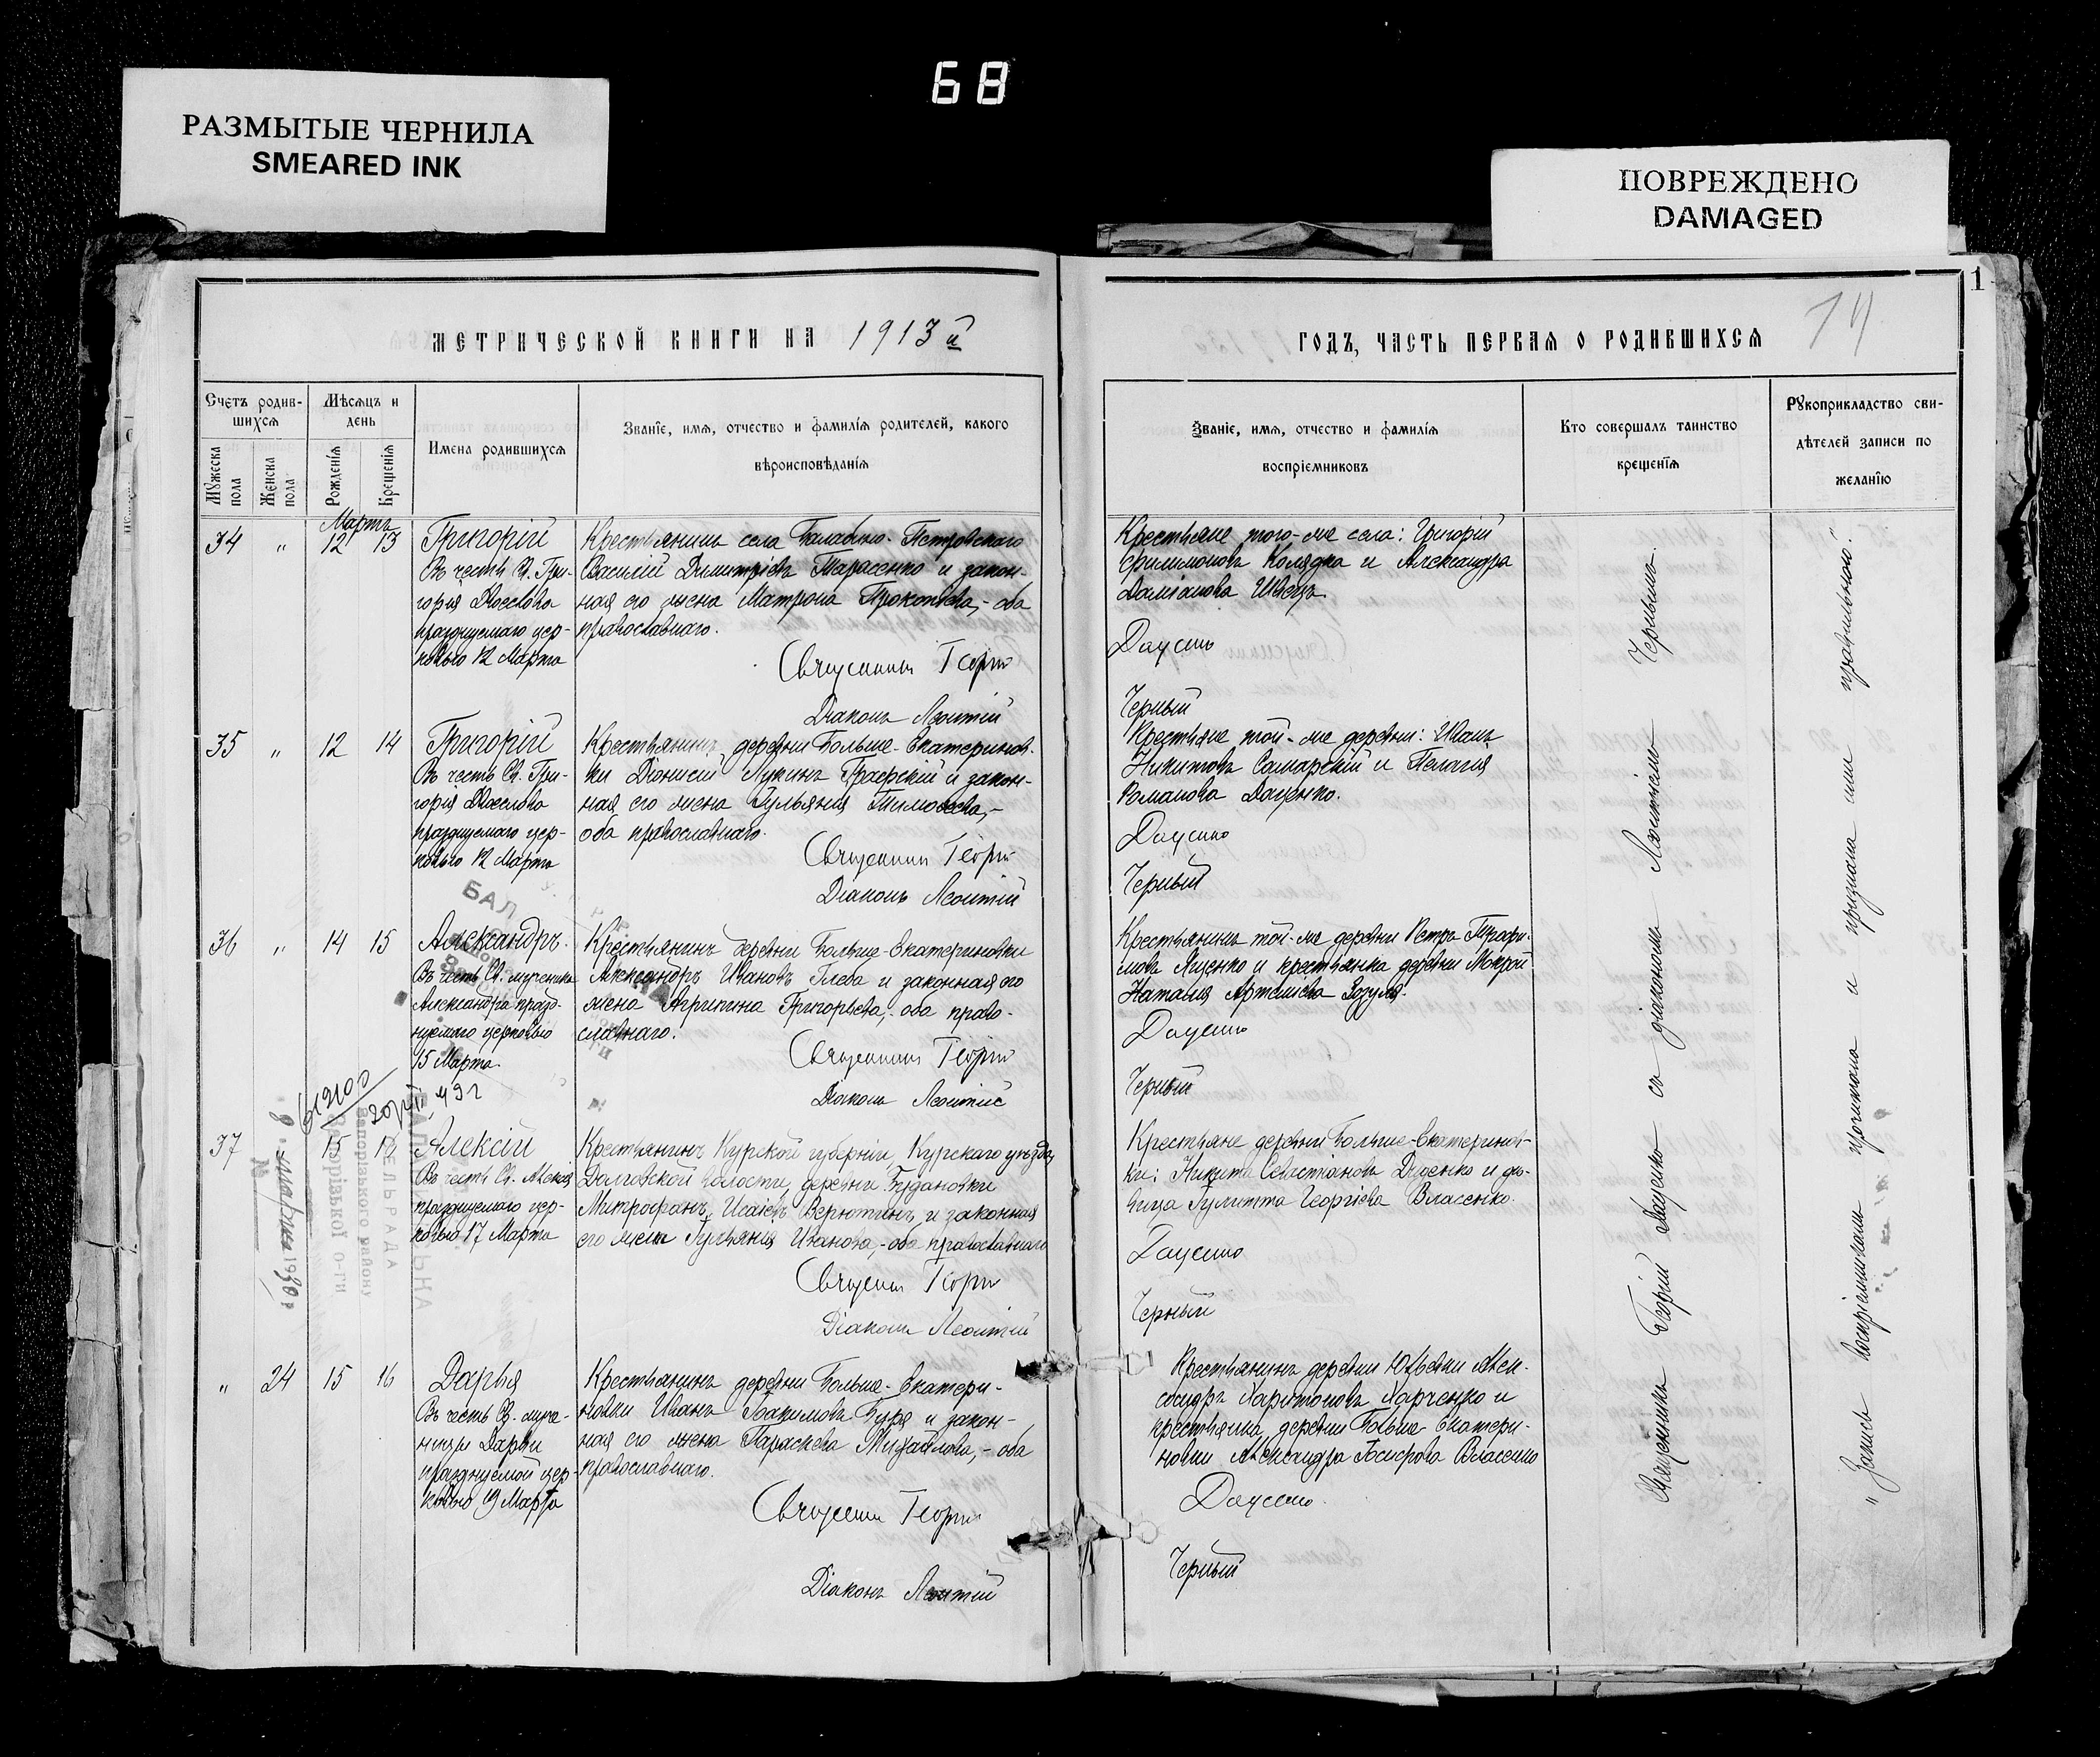 68
РАЗМЫТЫЕ ЧЕРНИЛА
SMEARED INK
ПОВРЕЖДЕНО
DAMAGED
1
14
МЕТРИЧЕСКОЙ КНИГИ НА 1913й
ГОДЪ, ЧАСТЬ ПЕРВАЯ О РОДИВШИХСЯ
Счетъ родив-
шихся
Мужеска пола
Женска пола
Мѣсяцъ и
день
Рожденїя
Крещенїя
Имена родившихся
Званїе, имя, отчество и фамилїя родителей, какого
вѣроисповѣданїя
Званїе, имя, отчество и фамилїя
воспрїемниковъ
Кто совершалъ таинство
крещенїя
Рукоприкладство сви-
дѣтелей записи по
желанїю
Мартъ
34 " 12 13
Григорій
Въ честь Св. Гри-
горія Двоеслова
празднуемаго цер-
ковью 12 Марта
Крестьянинъ села Балабино-Петровскаго
Василій Димитріевъ Тарасенко и закон-
ная его жена Матрона Прокопіева, - оба
православнаго.
Священникъ Георгій
Діаконъ Леонтій
Крестьяне того-же села: Григорій
Филимоновъ Колядка и Александра
Даміанова Швецъ.
Даценко
Черный
35 " 12 14
Григорій
Въ честь Св. Гри-
горія Двоеслова
празднуемаго цер-
ковью 12 Марта
Крестьянинъ деревни Больше-Екатеринов-
ки Діонисій Лукинъ Граерскій и закон-
ная его жена Іульянія Тимоѳеева, -
оба православнаго.
Священникъ Георгій
Діаконъ Леонтій
Крестьяне той-же деревни: Иванъ
Никитовъ Самарскій и Пелагія
Романова Даценко.
Даценко
Черный
36 " 14 15
Александръ.
Въ честь Св. мученика
Александра празд-
нуемаго церковью
15 Марта.
Крестьянинъ деревни Больше-Екатериновки
Александръ Ивановъ Глеба и законная его
жена Агрипина Григорьева, - оба право-
славнаго.
Священникъ Георгій
Діаконъ Леонтій
Крестьянинъ той-же деревни Петръ Трофи-
мовъ Яценко и крестьянка деревни Мокрой
Наталія Артемиева Зозуля.
Даценко
Черный
37 15 16
Алексій
Въ честь Св. Алексія
празднуемаго цер-
ковью 17 Марта
Крестьянинъ Курской губерніи, Курскаго уѣзда,
Долговской волости, деревни Будановки
Митрофанъ Исаіевъ Верютинъ и законная
его жена Іульянія Иванова, - оба православнаго
Священникъ Георгій
Діаконъ Леонтій
Крестьяне деревни Больше-Екатеринов-
ки: Никита Севастіановъ Даценко и дѣ-
вица Іулитта Георгіева Власенко.
Даценко
Черный
" 24 15 16
Дарья
Въ честь Св. муче-
ницы Дарьи
празднуемой цер-
ковью 19 Марта
Крестьянинъ деревни Больше-Екатери-
новки Иванъ Іоакимовъ Буря и закон-
ная его жена Параскева Михайлова, - оба
православнаго.
Священникъ Георгій
Діаконъ Леонтій
Крестьянинъ деревни Юльевки Алек-
сандръ Харитоновъ Харченко и
крестьянка деревни Больше-Екатери-
новки Александра Іосифова Власенко
Даценко
Черный
Священникъ Георгій Даценко съ діакономъ Леонтіемъ Чернымъ.
" Запись воспріемниками прочитана и признана ими правильною."